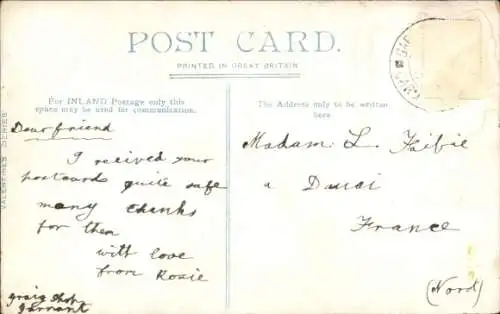 POST CARD.
PRINTED IN GREAT BRITAIN
For INLAND Postage only this
space may be used for communication.
The Address only to be written
here
VALENTINES SERIES
Dear friend
I recived your
postcards quite safe
many thanks
for them
with love
from Rosie
graig shop
garnant
Madam L.
a Douai
France
(Nord)